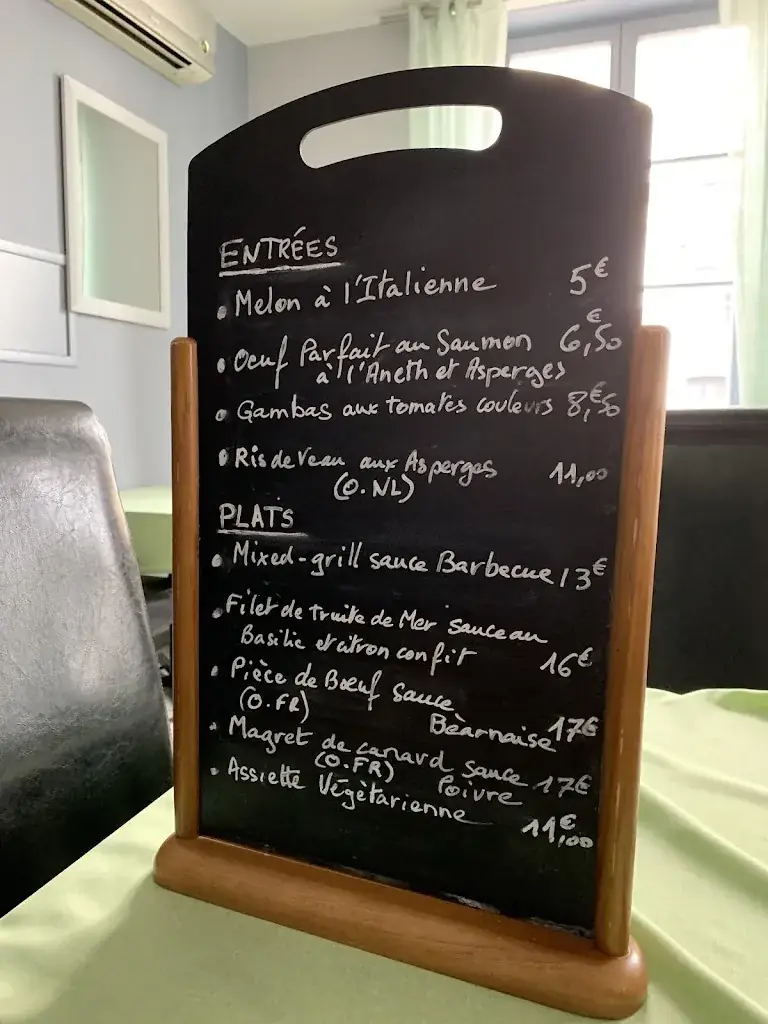 ENTRÉES
• Melon à l'Italienne 5€
• Oeuf Parfait au Saumon 6,50€
à l'Aneth et Asperges
• Gambas aux tomates couleurs 8,50€
• Ris de Veau aux Asperges 11,00
(O.NL)
PLATS
• Mixed-grill sauce Barbecue 13€
• Filet de truite de Mer sauce au
Basilic et citron confit 16€
• Pièce de Bœuf sauce
(O.FR) Béarnaise 17€
• Magret de canard sauce 17€
(O.FR) Poivre
• Assiette Végètarienne 11,00€